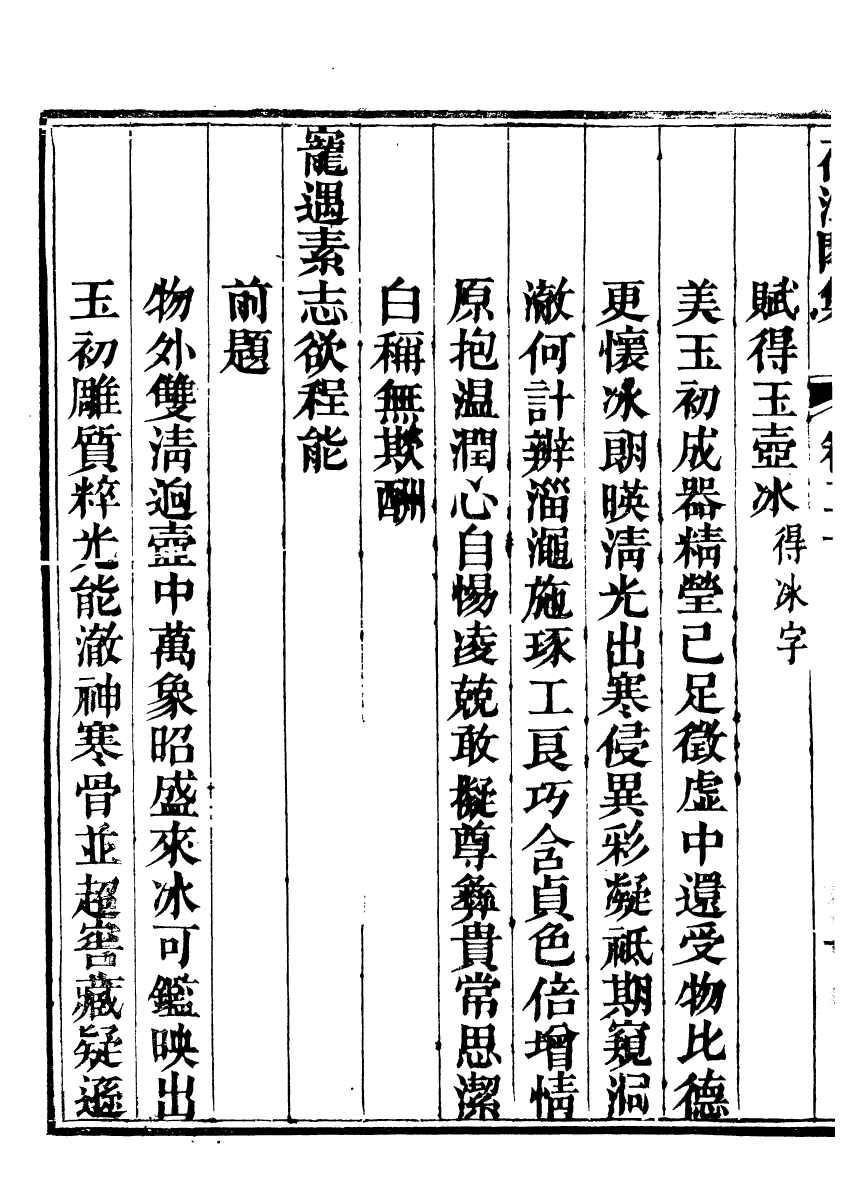 賦得玉壺冰得冰字
美玉初成器精瑩已足徵虛中還受物比德
更懷冰朗暎淸光出寒侵異彩凝祗期窺洞
澈何計辨淄澠施琢工良巧含貞色倍增情
原抱温潤心自惕凌兢敢擬尊彝貴常思潔
白稱無欺酬
寵遇素志欲程能
前題
物外雙淸迥壺中萬象昭盛來冰可鑑映出
玉初雕質粹光能澈神寒骨並超窖藏疑遜